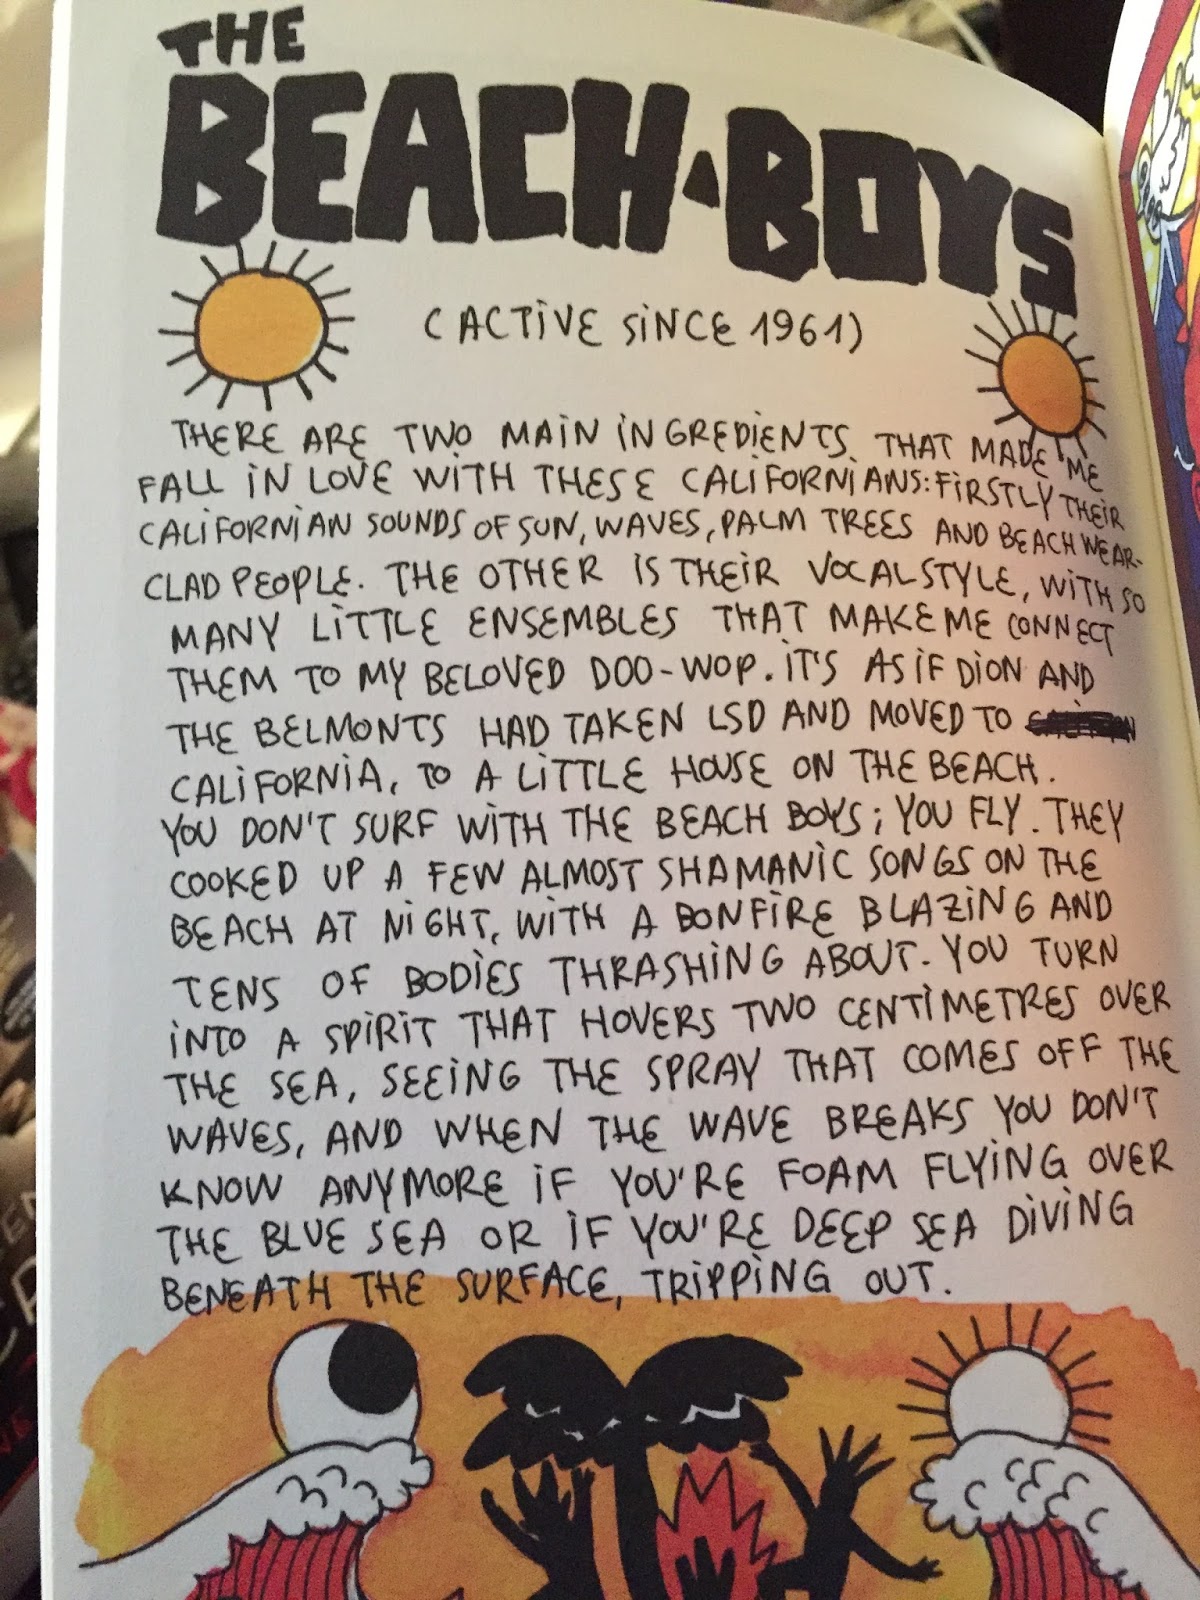 THE
BEACH BOYS
(ACTIVE SINCE 1961)
THERE ARE TWO MAIN INGREDIENTS THAT MADE ME
FALL IN LOVE WITH THESE CALIFORNIANS: FIRSTLY THEIR
CALIFORNIAN SOUNDS OF SUN, WAVES, PALM TREES AND BEACHWEAR-
CLAD PEOPLE. THE OTHER IS THEIR VOCAL STYLE, WITH SO
MANY LITTLE ENSEMBLES THAT MAKE ME CONNECT
THEM TO MY BELOVED DOO-WOP. IT'S AS IF DION AND
THE BELMONTS HAD TAKEN LSD AND MOVED TO
CALIFORNIA, TO A LITTLE HOUSE ON THE BEACH.
YOU DON'T SURF WITH THE BEACH BOYS; YOU FLY. THEY
COOKED UP A FEW ALMOST SHAMANIC SONGS ON THE
BEACH AT NIGHT, WITH A BONFIRE BLAZING AND
TENS OF BODIES THRASHING ABOUT. YOU TURN
INTO A SPIRIT THAT HOVERS TWO CENTIMETRES OVER
THE SEA, SEEING THE SPRAY THAT COMES OFF THE
WAVES, AND WHEN THE WAVE BREAKS YOU DON'T
KNOW ANYMORE IF YOU'RE FOAM FLYING OVER
THE BLUE SEA OR IF YOU'RE DEEP SEA DIVING
BENEATH THE SURFACE, TRIPPING OUT.